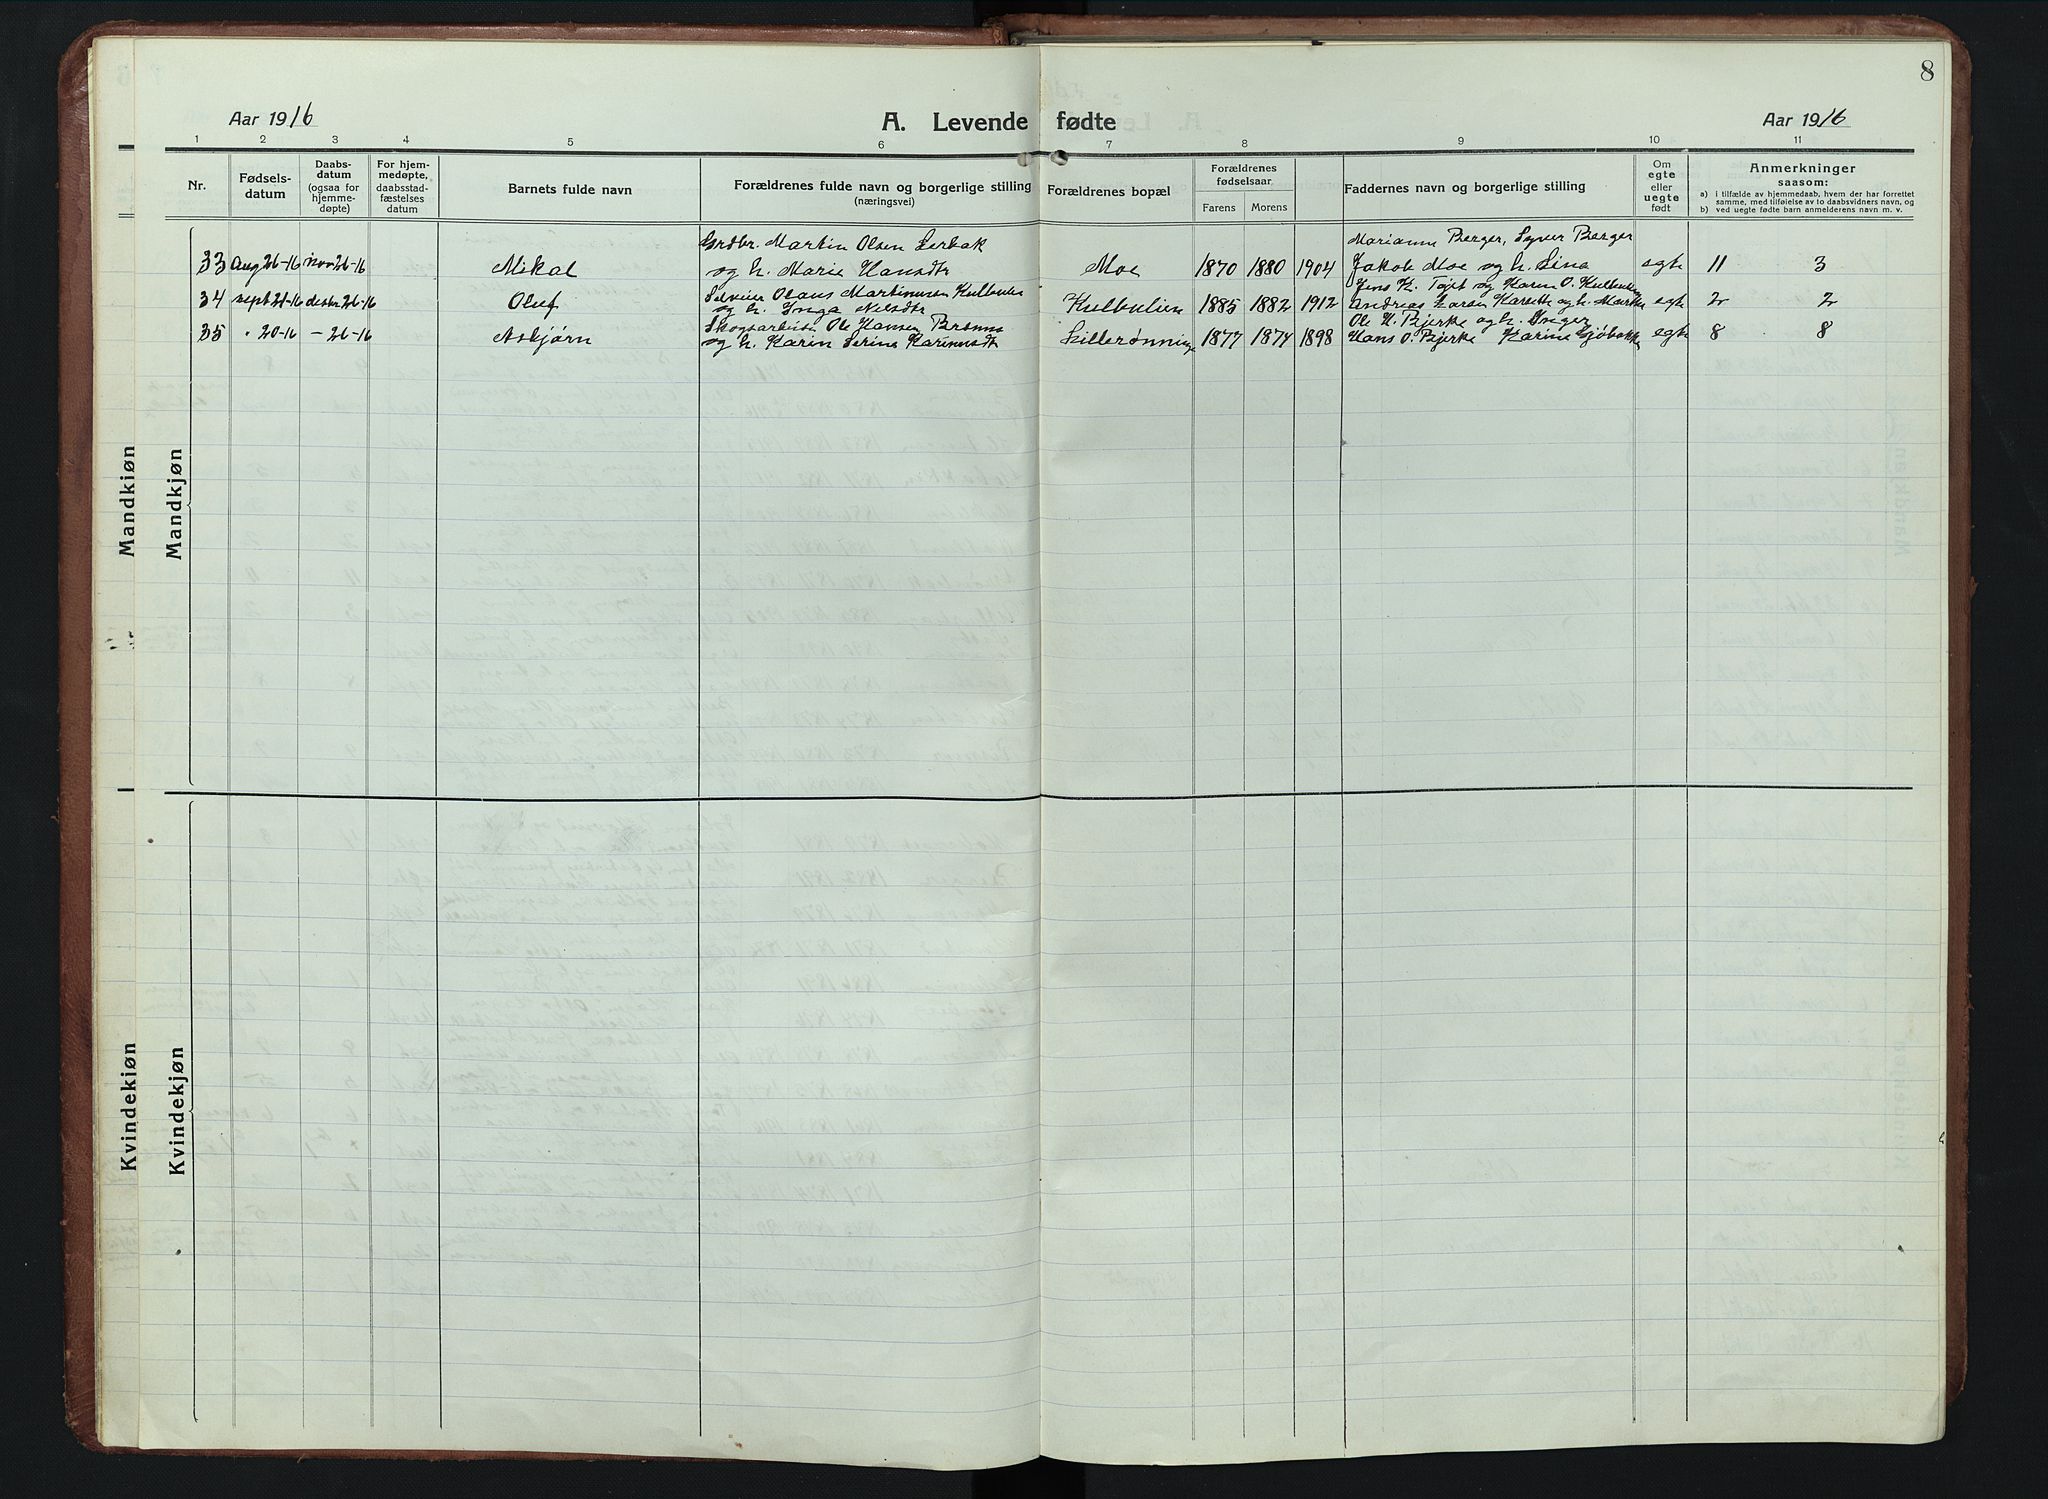 8
Aar 1916
A. Levende fødte
Aar 1916
1 2 3 4 5 6 7 8 9 10 11
Nr.
Fødselsdatum
Daabsdatum (ogsaa for hjemmedøpte)
For hjemmedøpte, daabsstadfæstelses datum
Barnets fulde navn
Forældrenes fulde navn og borgerlige stilling
(næringsvei)
Forældrenes bopæl
Forældrenes fødselsaar
Farens Morens
Faddernes navn og borgerlige stilling
Om egte eller uegte født
Anmerkninger
saasom:
a) i tilfælde av hjemmedaab, hvem der har forrettet samme, med tilføielse av to daabsvidners navn, og
b) ved uegte fødte barn anmelderens navn m. v.
Martin Olsen
Marianne Berger, Syver Berger
33 Aug 26-16 Nov 26-16 Mikal og h. Marie Hansdtr Moe 1870 1880 1904 Jakob Moe og h. Lina egte 11 3
Olaus Martinusen Kulbulien
Jens K. og Karen O. Kulbulien
34 sept 21-16 desbr 26-16 Oluf og h. Inga Nilsdtr Kulbulien 1885 1882 1912 Andreas Larsen og h. egte 2 2
Skogsarbeider Ole Hansen
Ole H. Bjerke og h. Inger
35 " 20-16 – 26-16 Asbjørn og h. Karen Serine Lillerønninge 1877 1874 1898 Hans O. Bjerke Karine egte 8 8
Mandkjøn
Mandkjøn
Kvindekjøn
Kvindekjøn